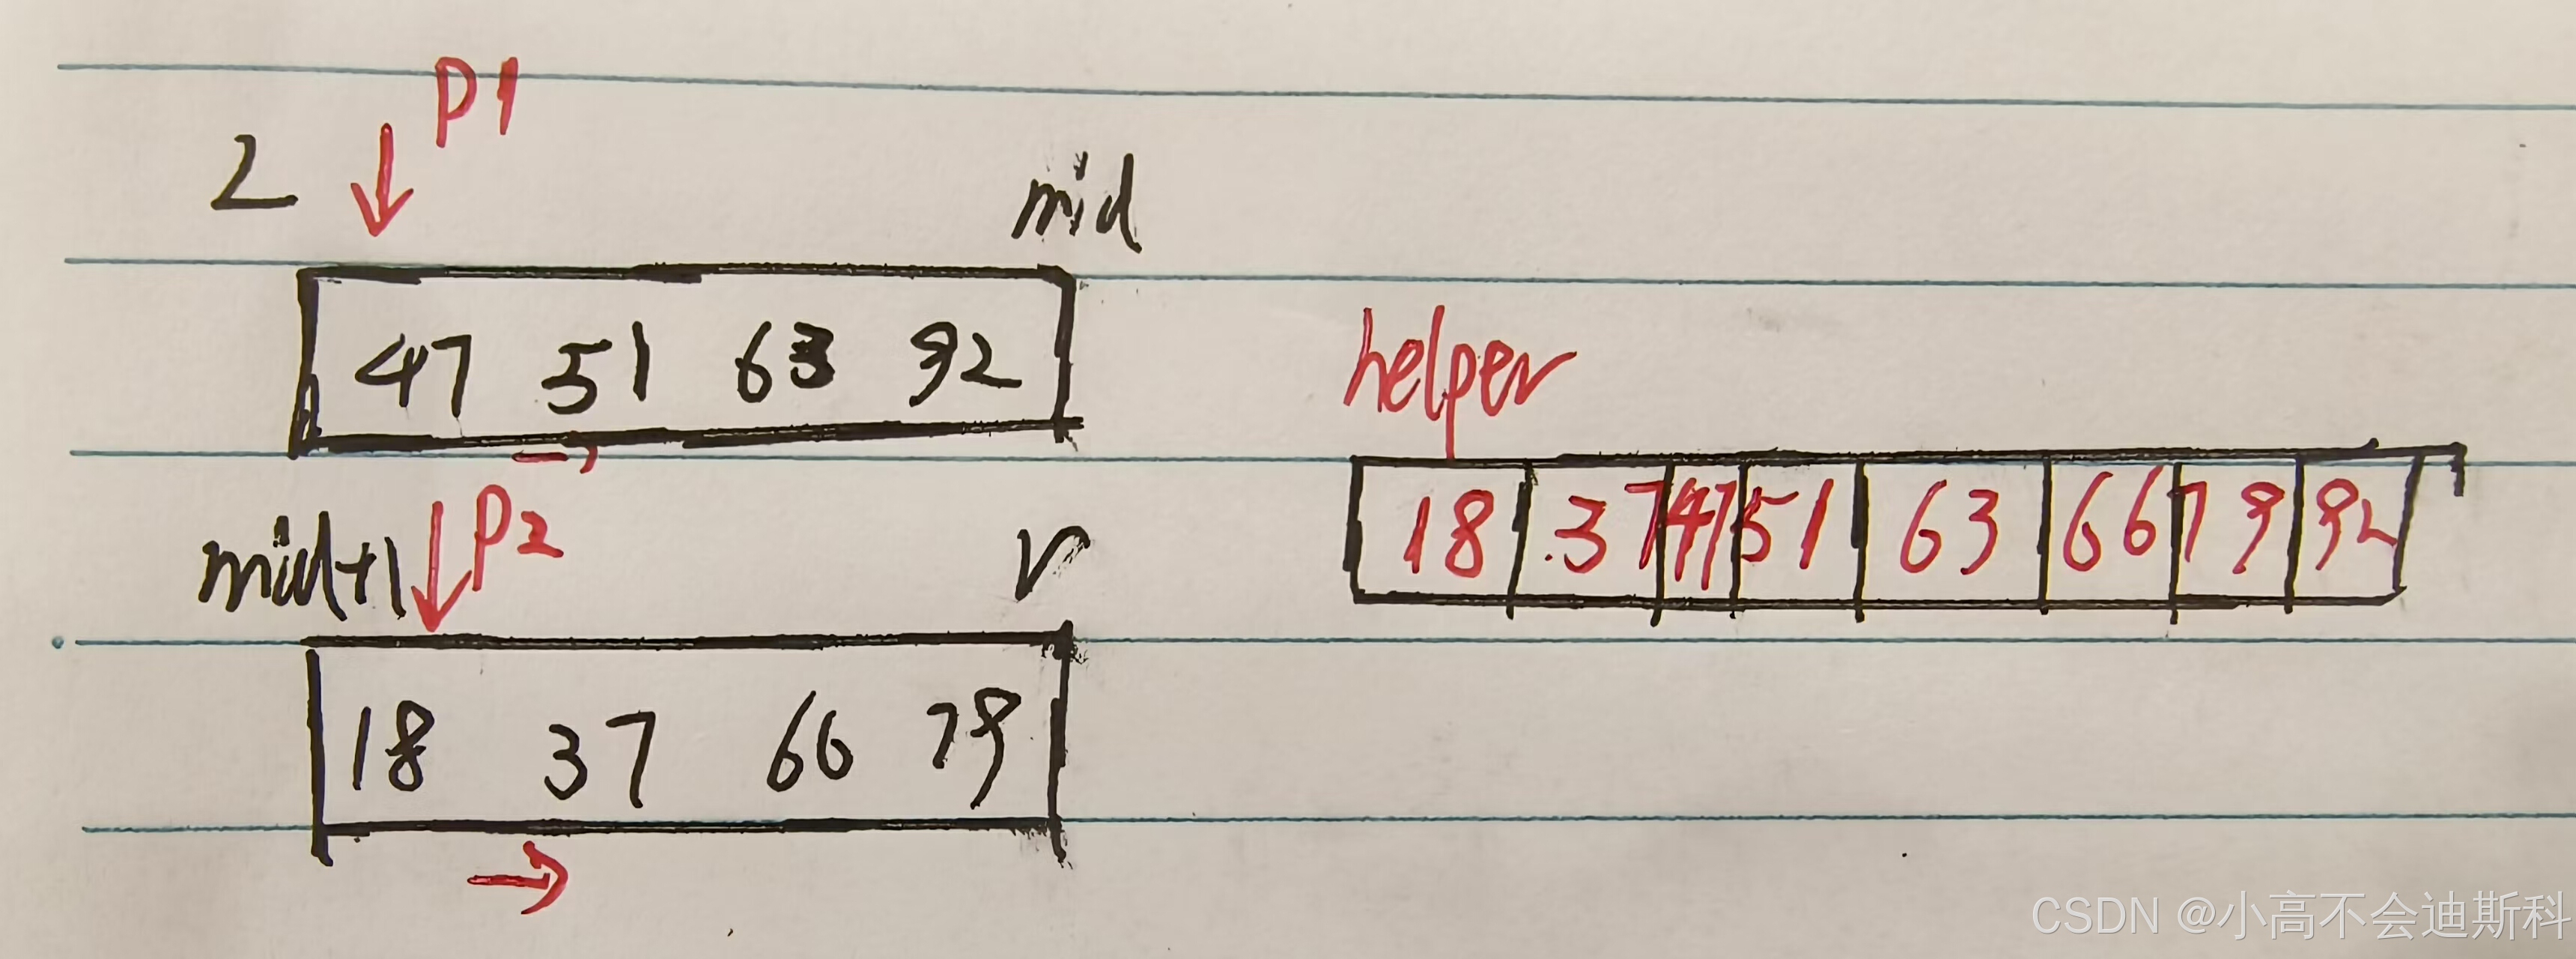 P1
L mid
47 51 63 92
helper
18 37 47 51 63 66 79 92
mid+1 P2 r
18 37 66 79
CSDN @小高不会迪斯科